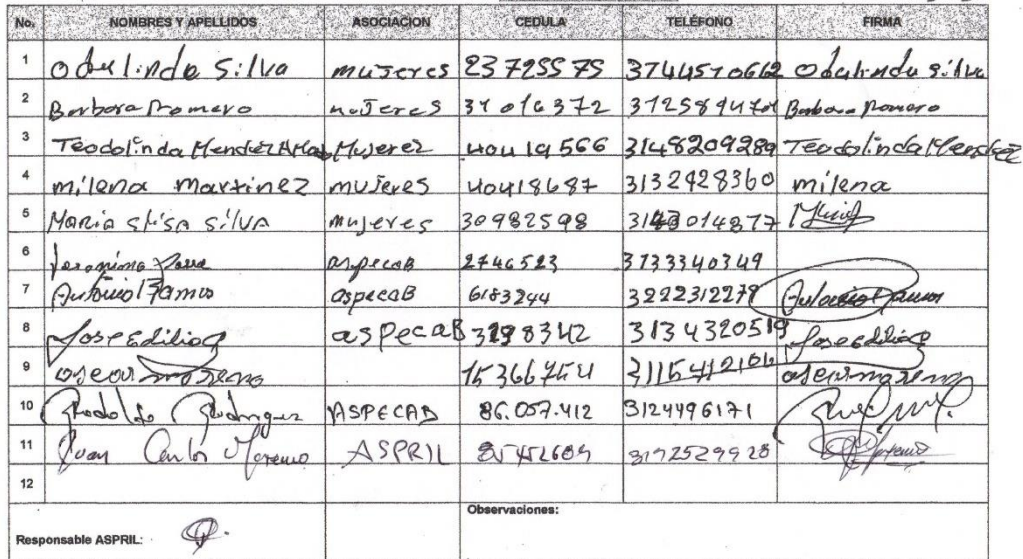 No. NOMBRES Y APELLIDOS ASOCIACION CEDULA TELÉFONO FIRMA
1 Odulinda Silva mujeres 23725575 3144570662 Odulinda Silva
2 Barbara Romero mujeres 3725894701 Barbara Romero
3 Teodolinda Mendez Mujerez 40419566 3148209289 Teodolinda Mendez
4 milena martinez mujeres 40418687 3132428360 milena
5 Maria elisa silva mujeres 30982598
6 aspecaB 2746523 3133340349
7 Antonio Ramos aspecaB 6183244 3222312279 Antonio Ramos
8 Jose Edilio aspecaB 3134320519 Jose Edilio
9 oscar moreno oscar moreno
10 Rodolfo Rodriguez ASPECAB 86.057.412 3124496171
11 Juan Carlos Moreno ASPRIL 3192529928 Moreno
12
Observaciones:
Responsable ASPRIL: